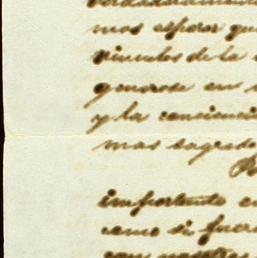 mos esperar que
vinculos de la
generose en
y la conciencia
mas sagrado
importante en
como si fuera
con nosotros